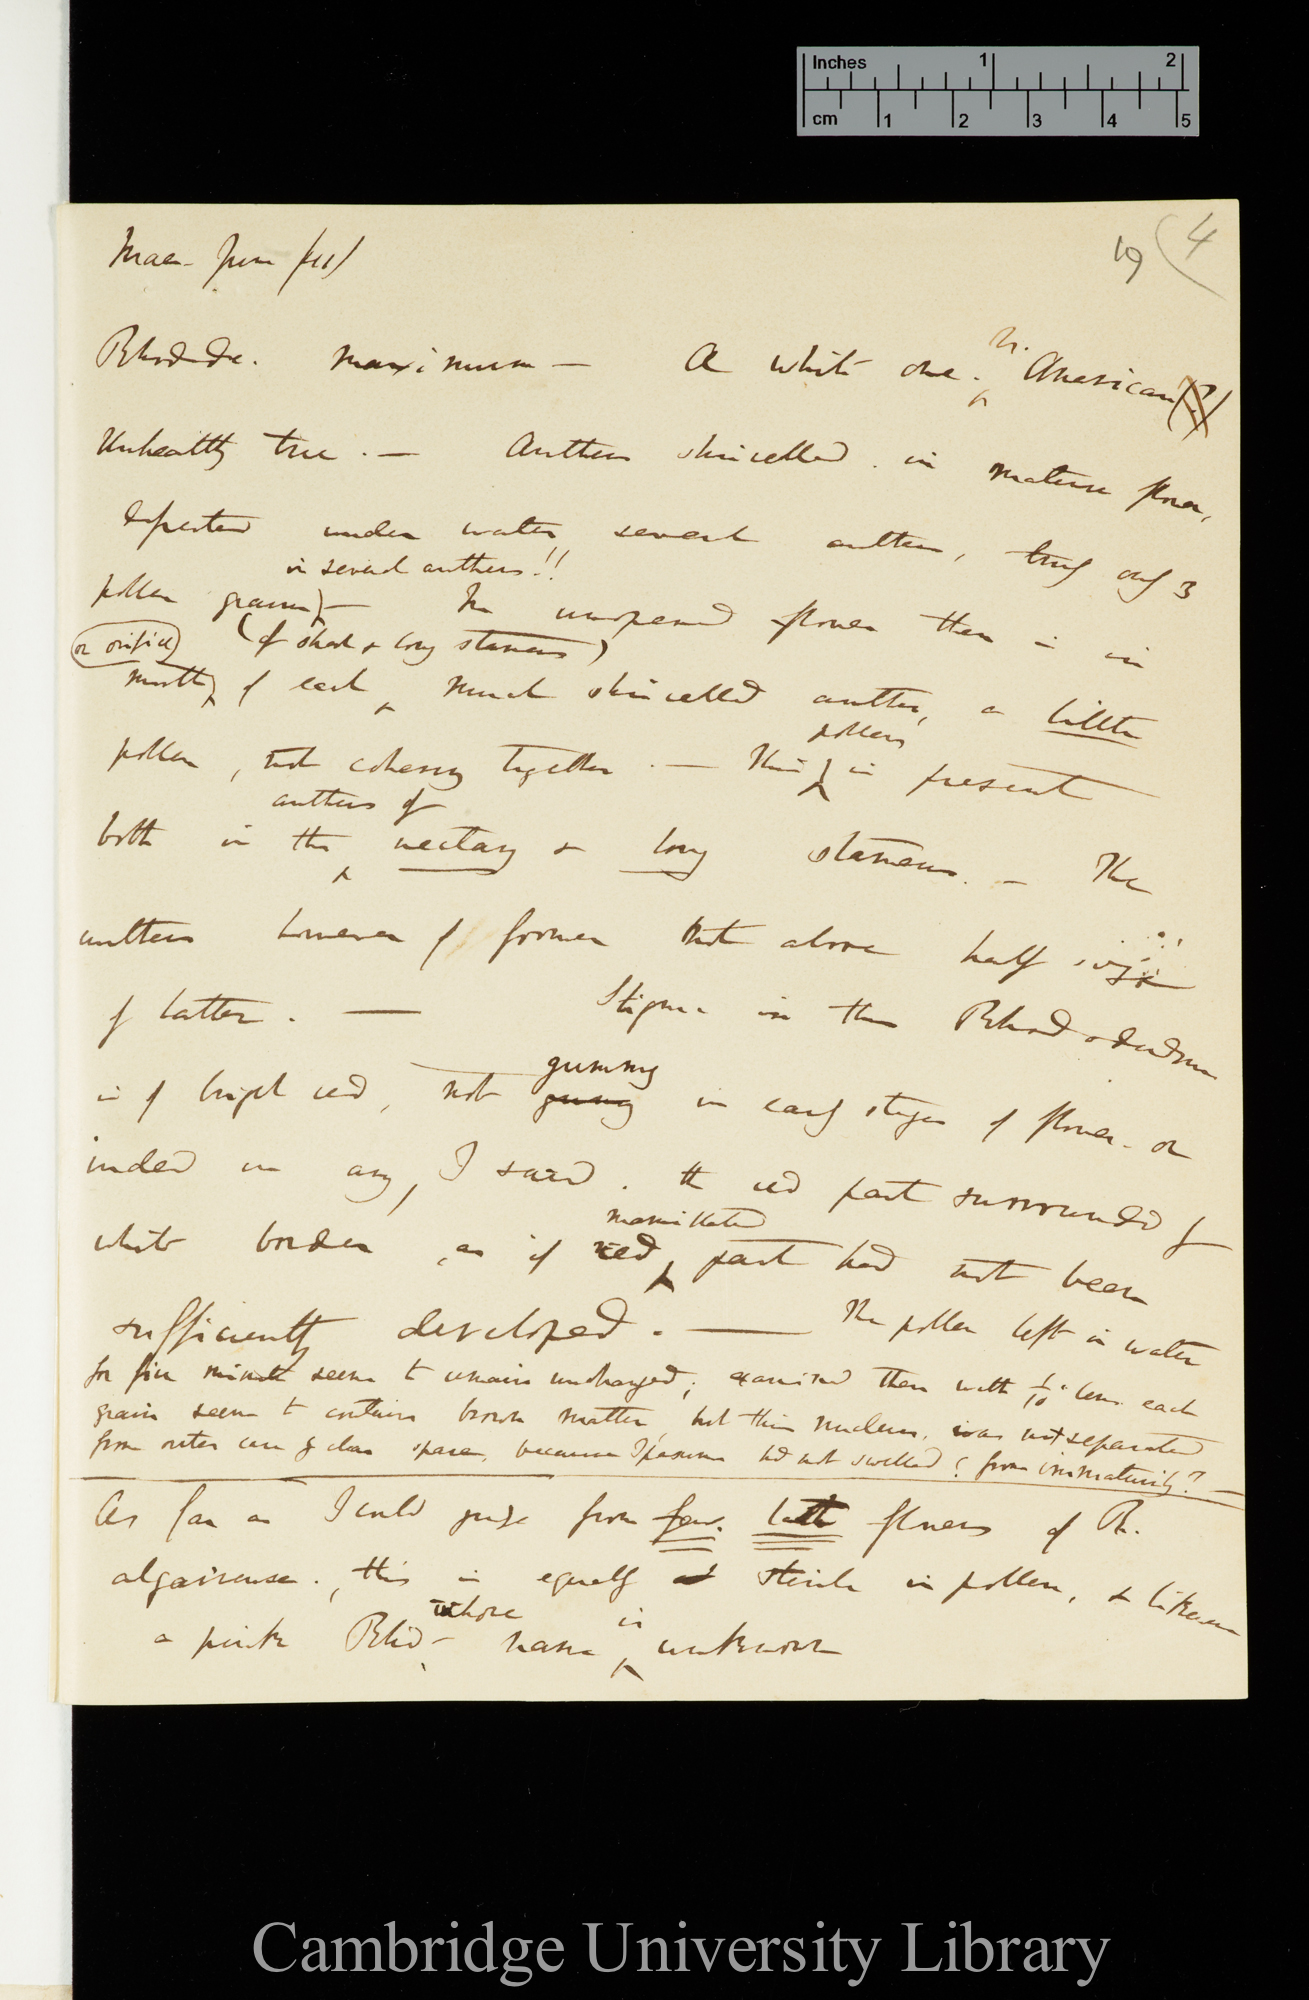 Inches 1 2
cm 1 2 3 4 5
19 (4
Maer. June (41)
Rhodode. maximum — A white one. N. American (?)
Unhealthy tree. — Anthers shrivelled. in mature flower,
dissected under water several anthers, only 3
in several anthers!!
pollen grains) — In unopened flower there is in
(or orifice) (of short & long stamens)
mouth, of each, much shrivelled anther, a little
pollen
pollen, not cohering together. — This, is present
anthers of
both in the nectary & long stamens. — The
anthers however of former not above half size
of latter. — Stigma in this Rhododendron
gummy
is of bright red, not gummy in early stages of flower. or
indeed in any, I said. the red part surrounded by
mamillated
white border, as if red part had not been
sufficiently developed. — The pollen left in water
for five minutes seems to remain unchanged; examined then with 1/10" lens. each
grain seems to contain brown matter, but this nucleus, was not separated
from outer case by clear space, because I presume had not swelled (from immaturity? —
As far as I could judge from few. late flowers of R.
algaviense., this is equally sterile in pollen, & likewise
whose is
a pink Rhod— name unknown
Cambridge University Library